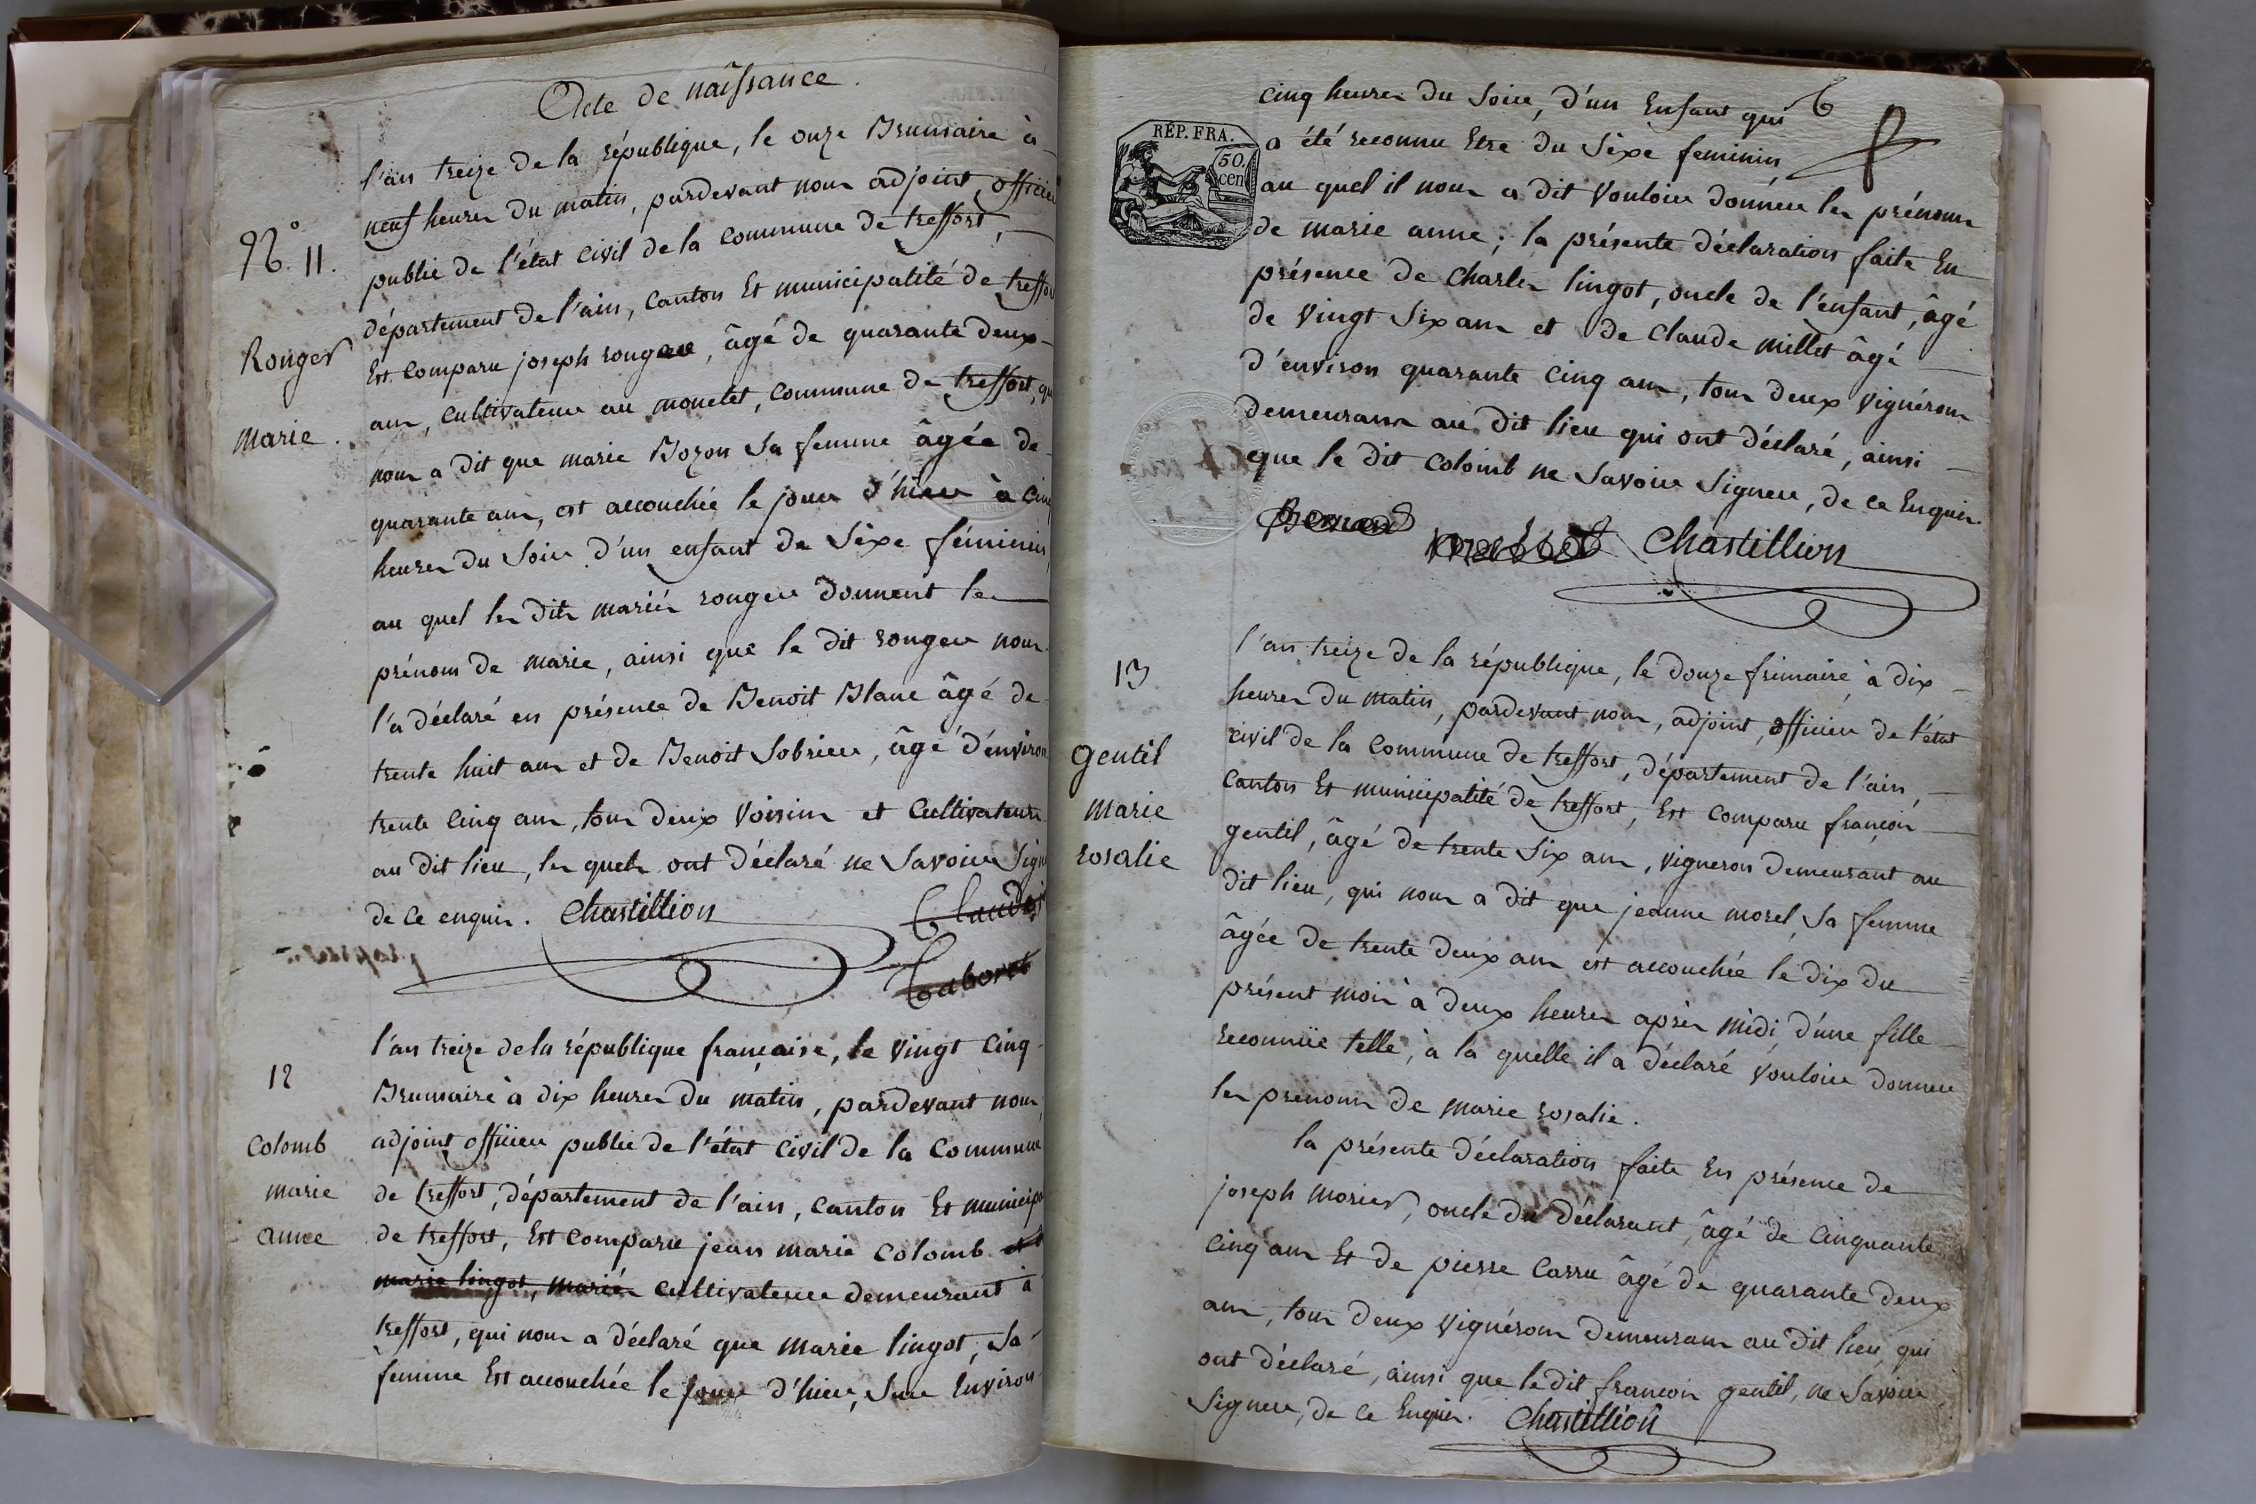 Acte de naissance.
N.° 11.
Rouger
marie.
l'an treize de la république, le onze Brumaire à
neuf heures du matin, pardevant nous adjoint, officier
public de l'état civil de la commune de treffort,
département de l'ain, canton Et municipalité de treffort
Est comparu joseph rouger, âgé de quarante deux
ans, cultivateur au moncelet, commune de treffort, qui
nous a dit que marie Bozon sa femme âgée de
quarante ans, est accouchée le jour d'hier à cinq
heures du soir d'un enfant de sexe féminin,
au quel les dits mariés rouger donnent les
prénoms de marie, ainsi que le dit rouger nous
l'a déclaré en présence de Benoit Blanc âgé de
trente huit ans et de Benoit Sobrier, âgé d'environ
trente cinq ans, tous deux voisins et cultivateurs
au dit lieu, les quels ont déclaré ne savoir sign
de ce enquis. Chastillion
12
Colomb
marie
anne
l'an treize de la république française, le vingt cinq
Brumaire à dix heures du matin, pardevant nous,
adjoint officier public de l'état civil de la commune
de treffort, département de l'ain, canton Et municip
de treffort, Est comparu jean marie colomb et
marie lingot, mariés cultivateur demeurant à
treffort, qui nous a déclaré que marie lingot, sa
femme Est accouchée le jour d'hier, sur Environ
cinq heures du soir, d'un Enfant qui
a été reconnu Etre du sexe feminin,
RÉP. FRA.
50.
cen
au quel il nous a dit vouloir donner les prénoms
de marie anne; la présente déclaration faite En
présence de charles lingot, oncle de l'enfant, âgé
de vingt six ans et de claude millet âgé
d'environ quarante cinq ans, tous deux vignérons
demeurans au dit lieu qui ont déclaré, ainsi
que le dit colomb ne savoir signer, de ce Enquis.
Chastillion
13
gentil
marie
rosalie
l'an treize de la république, le douze frimaire à dix
heures du matin, pardevant nous, adjoint, officier de l'état
civil de la commune de treffort, département de l'ain,
canton Et municipalité de treffort, Est comparu françois
gentil, âgé de trente six ans, vigneron demeurant au
dit lieu, qui nous a dit que jeanne morel, sa femme
âgée de trente deux ans est accouchée le dix du
présent mois à deux heures après midi, d'une fille
reconnüe telle, à la quelle il a déclaré vouloir donner
les prenoms de marie rosalie.
la présente déclaration faite En présence de
joseph morier, oncle du déclarant, âgé de cinquante
cinq ans Et de pierre carru âgé de quarante deux
ans, tous deux vignérons demeurans au dit lieu, qui
ont déclaré, ainsi que le dit françois gentil, ne savoir
signer, de ce Enquis. Chastillion